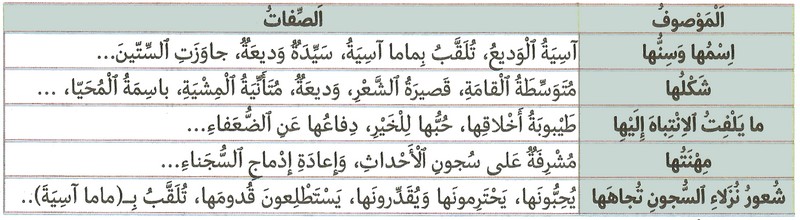 اَلْمَوْصوفُ اَلصِّفاتُ
اِسْمُها وَسِنُّها آسِيَةُ ٱلْوَديعُ، تُلَقَّبُ بِماما آسِيَةُ، سَيِّدَةٌ وَديعَةٌ، جاوَزَتِ ٱلسِّتّينَ...
شَكْلُها مُتَوَسِّطَةُ ٱلْقامَةِ، قَصيرَةُ ٱلشَّعْرِ، وَديعَةٌ، مُتَأَنِّيَةُ ٱلْمِشْيَةِ، باسِمَةُ ٱلْمُحَيّا، ...
ما يَلْفِتُ ٱلِانْتِباهَ إِلَيْها طَيْبوبَةُ أَخْلاقِها، حُبُّها لِلْخَيْرِ، دِفاعُها عَنِ ٱلضُّعَفاءِ...
مِهْنَتُها مُشْرِفَةٌ عَلى سُجونِ ٱلْأَحْداثِ، وَإِعادَةِ إِدْماجِ ٱلسُّجَناءِ...
شُعورُ نُزَلاءِ ٱلسُّجونِ تُجاهَها يُحِبُّونَها، يَحْتَرِمونَها وَيُقَدِّرونَها، يَسْتَطْلِعونَ قُدومَها، تُلَقَّبُ بِـ(ماما آسِيَةَ)..